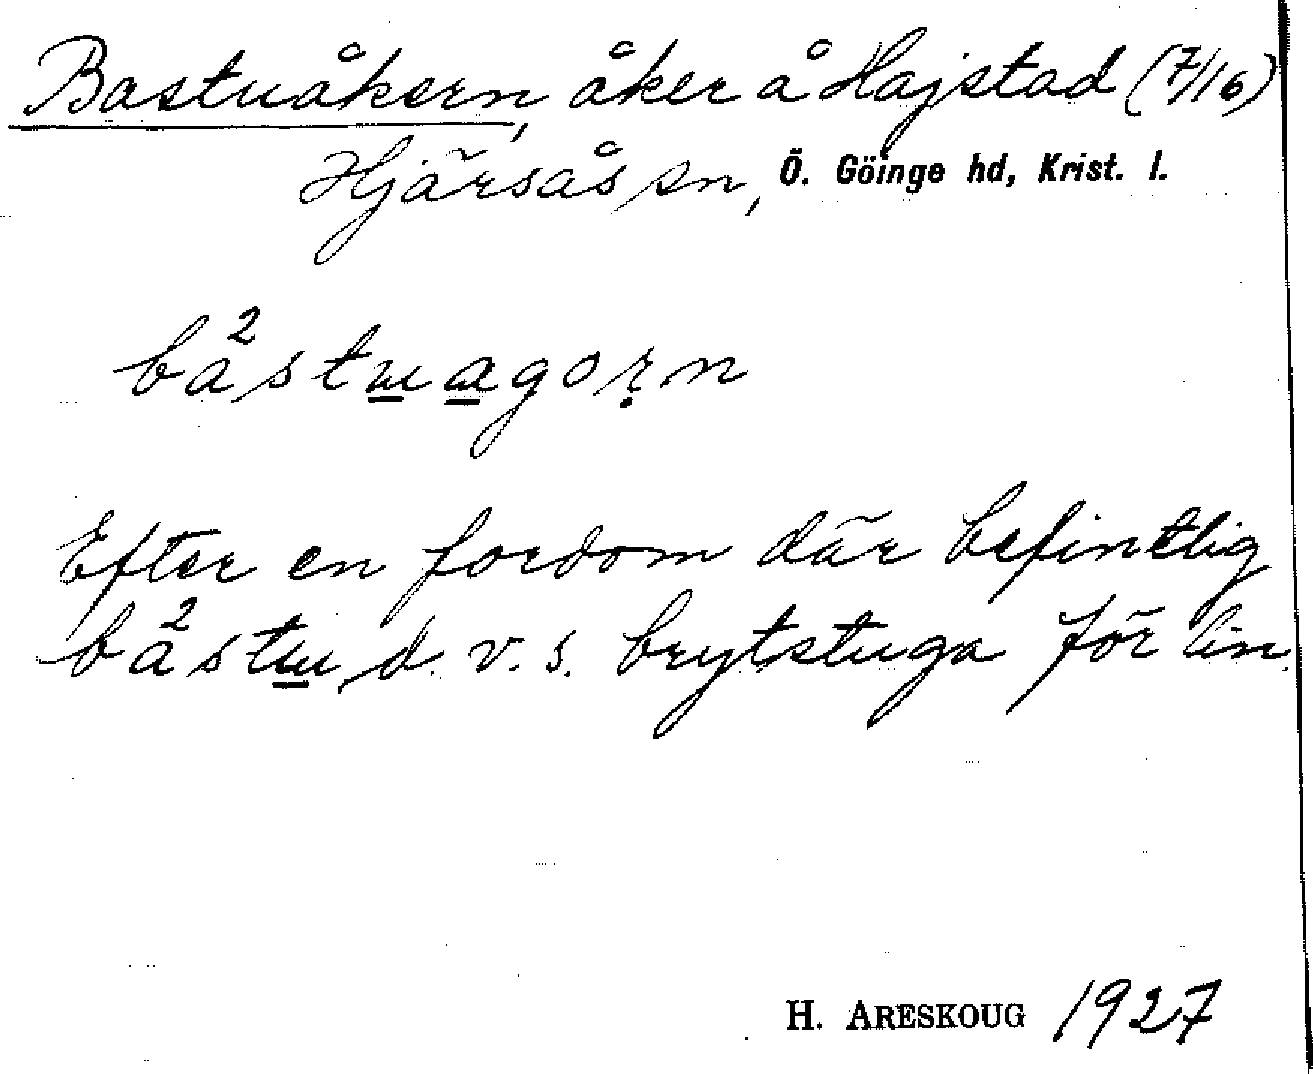 Bastuåkern, åker å Hajstad (7/16)
Hjärsås sn, Ö. Göinge hd, Krist. l.
ba²stuagorn
Efter en fordom där befintlig
ba²stu, d. v. s. brytstuga för lin.
H. ARESKOUG 1927